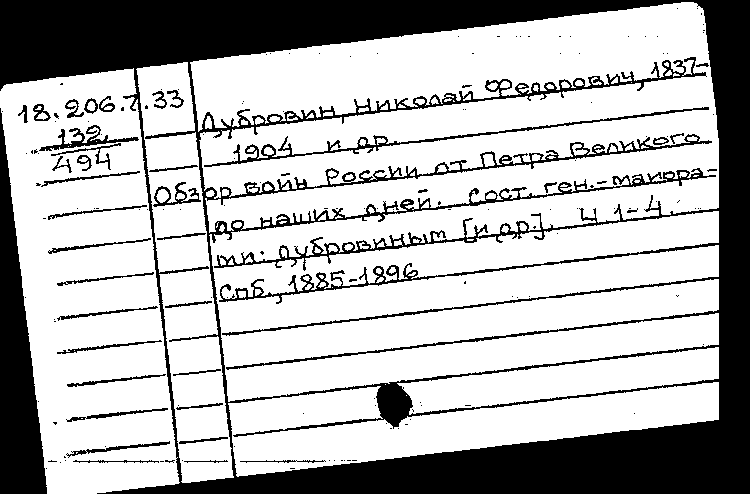 18.206.7.33
132
494
Дубровин, Николай Федорович, 1837-
1904 и др.
Обзор войн России от Петра Великого
до наших дней. Сост. ген.-майора-
ми: Дубровиным [и др.]. Ч 1-4.
Спб., 1885-1896